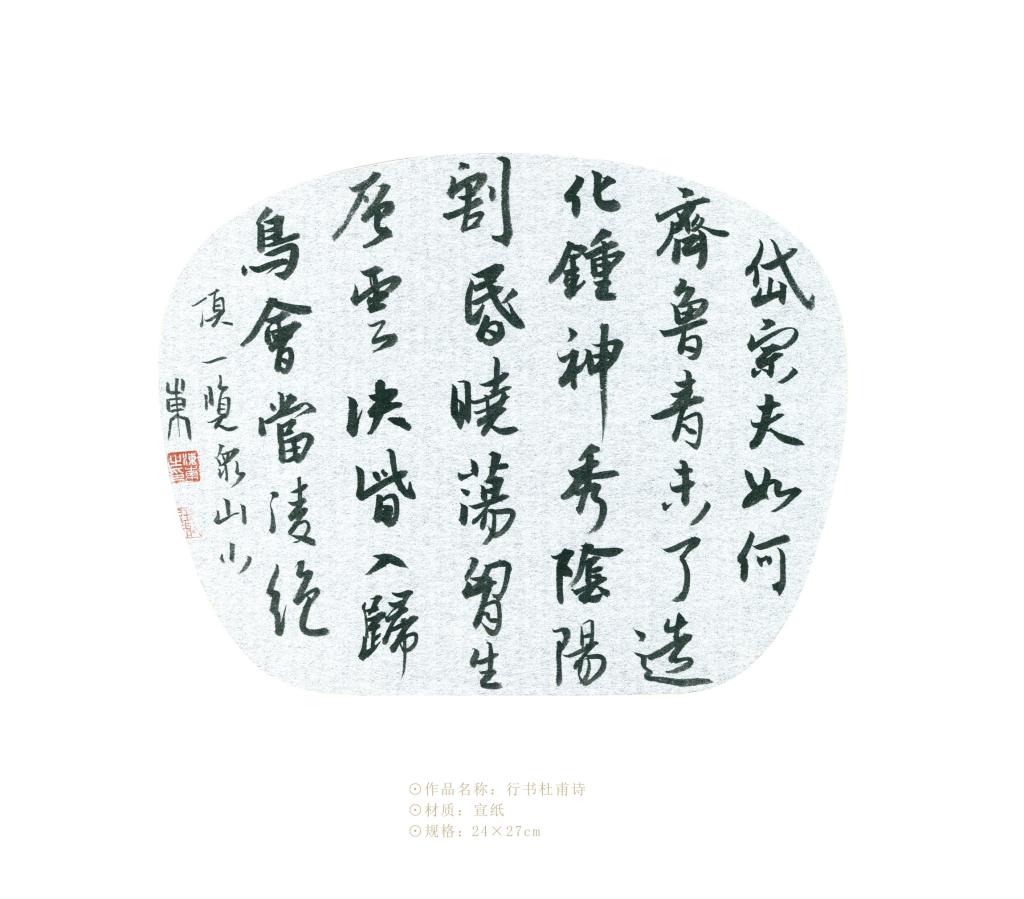 岱宗夫如何
齊魯青未了造
化鍾神秀陰陽
割昏曉蕩胷生
層雲决眥入歸
鳥會當淩絶
頂一覽眾山小
東
⊙作品名称：行书杜甫诗
⊙材质：宣纸
⊙规格：24×27cm